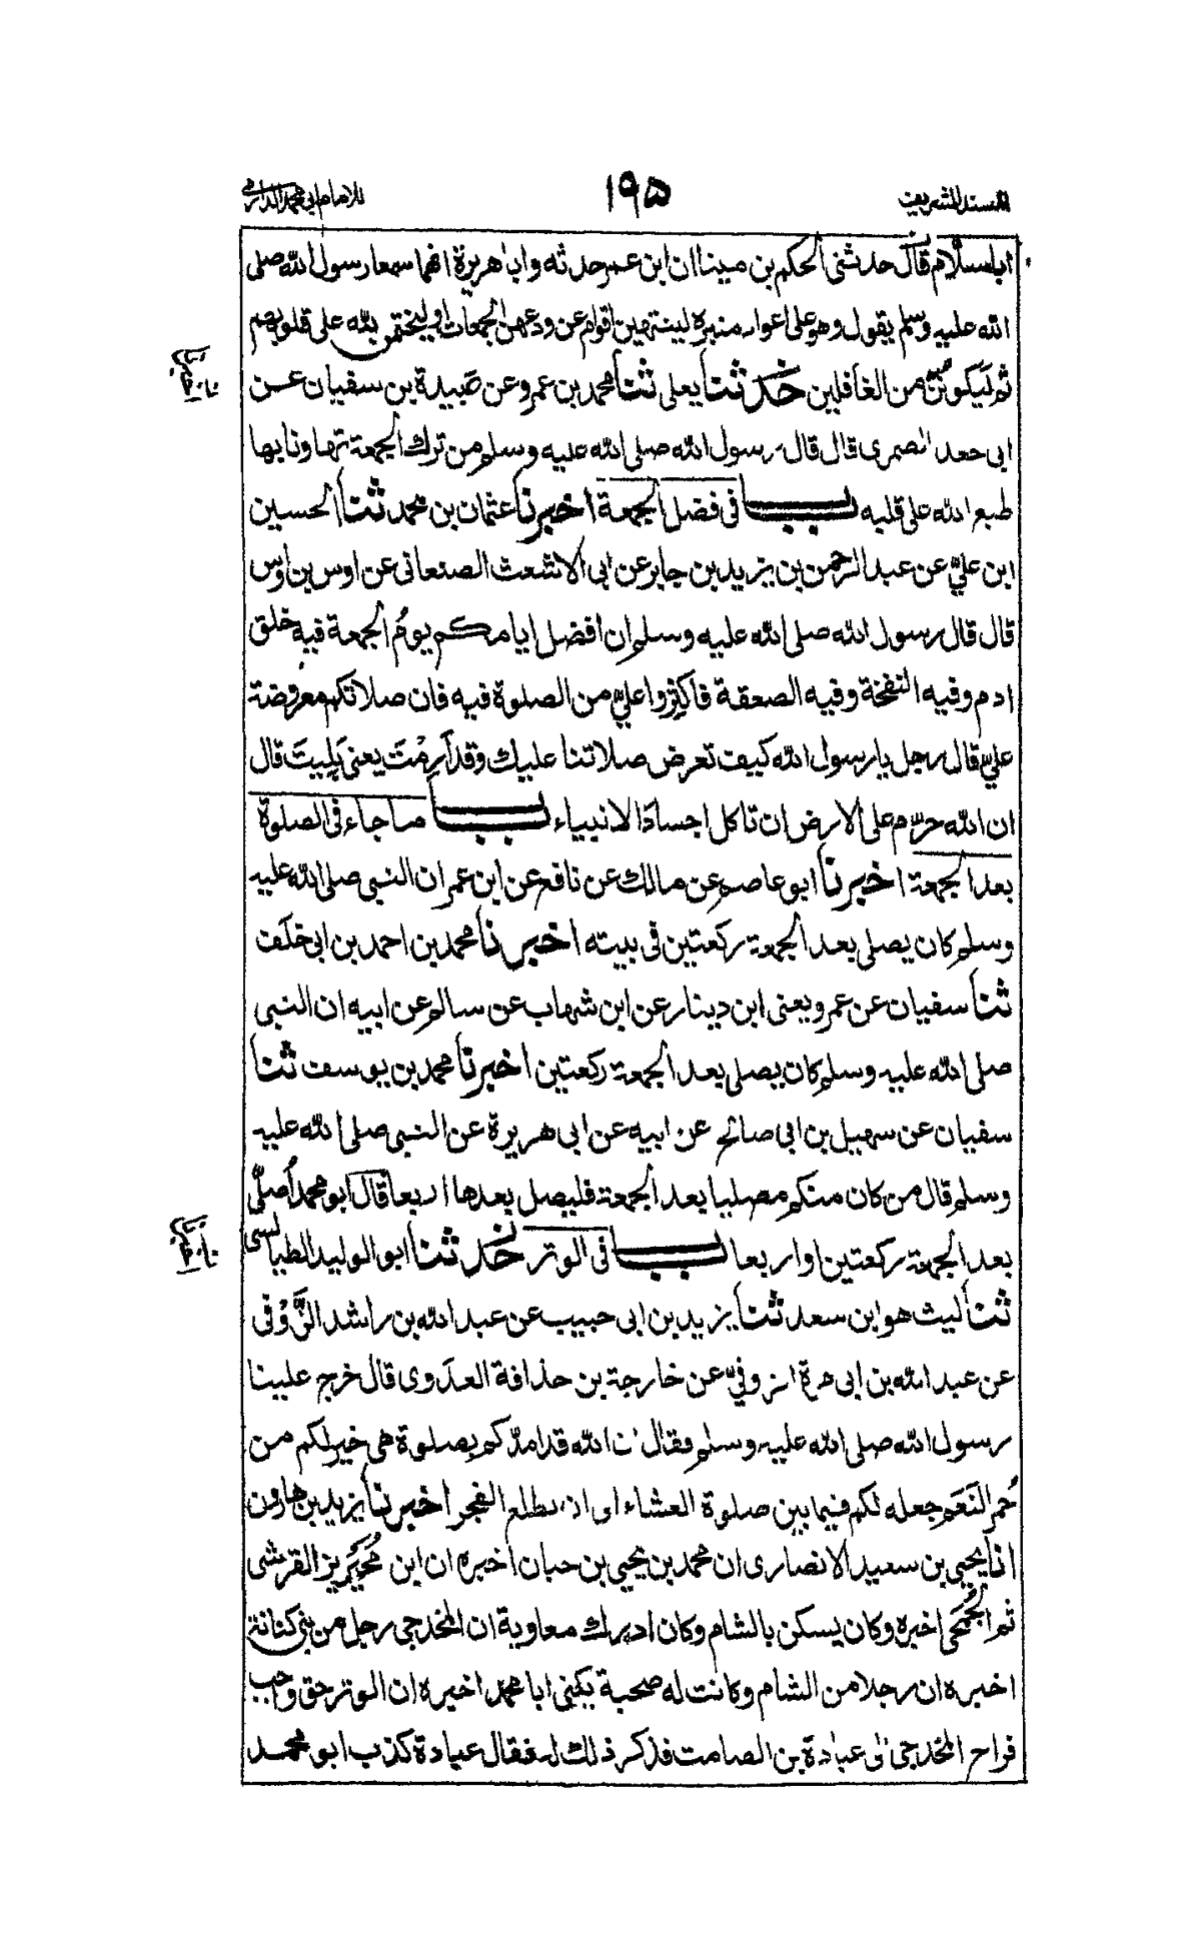 المسند الشريف
١٩٥
للامام ابي محمد الدارمي
اباسلام قال حدثني الحكم بن مينا ان ابن عمر حدثه وابا هريرة انهما سمعا رسول الله صلى
الله عليه وسلم يقول وهو على اعواد منبره لينتهين اقوام عن ودعهن الجمعات او ليختمن الله على قلوبهم
ثم لَيكونُنَّ من الغافلين حَدثنا يعلى ثنا محمد بن عمرو عن عَبيدة بن سفيان عن
ابي جعد الضمرى قال قال رسول الله صلى الله عليه وسلم من ترك الجمعة تهاونا بها
طبع الله على قلبه باب فى فضل الجمعة اخبرنا عثمان بن محمد ثنا الحسين
ابن عليّ عن عبد الرحمن بن يزيد بن جابر عن ابى الاشعث الصنعانى عن اوس بن اوس
قال قال رسول الله صلى الله عليه وسلم ان افضل ايامكم يومُ الجمعة فيه خلق
ادم وفيه النفخة وفيه الصعقة فاكثروا عليّ من الصلوة فيه فان صلاتكم معروضة
عليّ قال رجل يا رسول الله كيف تعرض صلاتنا عليك وقد اَرِمْتَ يعنى بَلِيتَ قال
ان الله حرّم على الارض ان تاكل اجساد الانبياء باب ما جاء فى الصلوة
بعد الجمعة اخبرنا ابو عاصم عن مالك عن نافع عن ابن عمر ان النبى صلى الله عليه
وسلم كان يصلى بعد الجمعة ركعتين فى بيته اخبرنا محمد بن احمد بن ابى خلَف
ثنا سفيان عن عمرو يعنى ابن دينار عن ابن شهاب عن سالم عن ابيه ان النبى
صلى الله عليه وسلم كان يصلى بعد الجمعة ركعتين اخبرنا محمد بن يوسف ثنا
سفيان عن سهيل بن ابى صالح عن ابيه عن ابى هريرة عن النبى صلى الله عليه
وسلم قال من كان منكم مصليا بعد الجمعة فليصل بعدها اربعا قال ابو محمد اُصلّى
بعد الجمعة ركعتين او اربعا باب فى الوتر حَدثنا ابو الوليد الطيالسى
ثنا ليث هو ابن سعد ثنا يزيد بن ابى حبيب عن عبد الله بن راشد الزَّوْفى
عن عبد الله بن ابى مرة الزوفيّ عن خارجة بن حذافة العدَوى قال خرج علينا
رسول الله صلى الله عليه وسلم فقال ان الله قد امدّكم بصلوة هى خير لكم من
حُمر النَعَم جعله لكم فيما بين صلوة العشاء الى ان يطلع الفجر اخبرنا يزيد بن هارون
انا يحيى بن سعيد الانصارى ان محمد بن يحيى بن حبان اخبره ان ابن مُحَيْرِيز القرشى
ثم الجُمَحى اخبره وكان يسكن بالشام وكان ادرك معاوية ان المخدجى رجل من بنى كنانة
اخبره ان رجلا من الشام وكانت له صحبة يكنى ابا محمد اخبره ان الوتر حق واجب
فراح المخدجى الى عبادة بن الصامت فذكر ذلك له فقال عبادة كذب ابو محمد